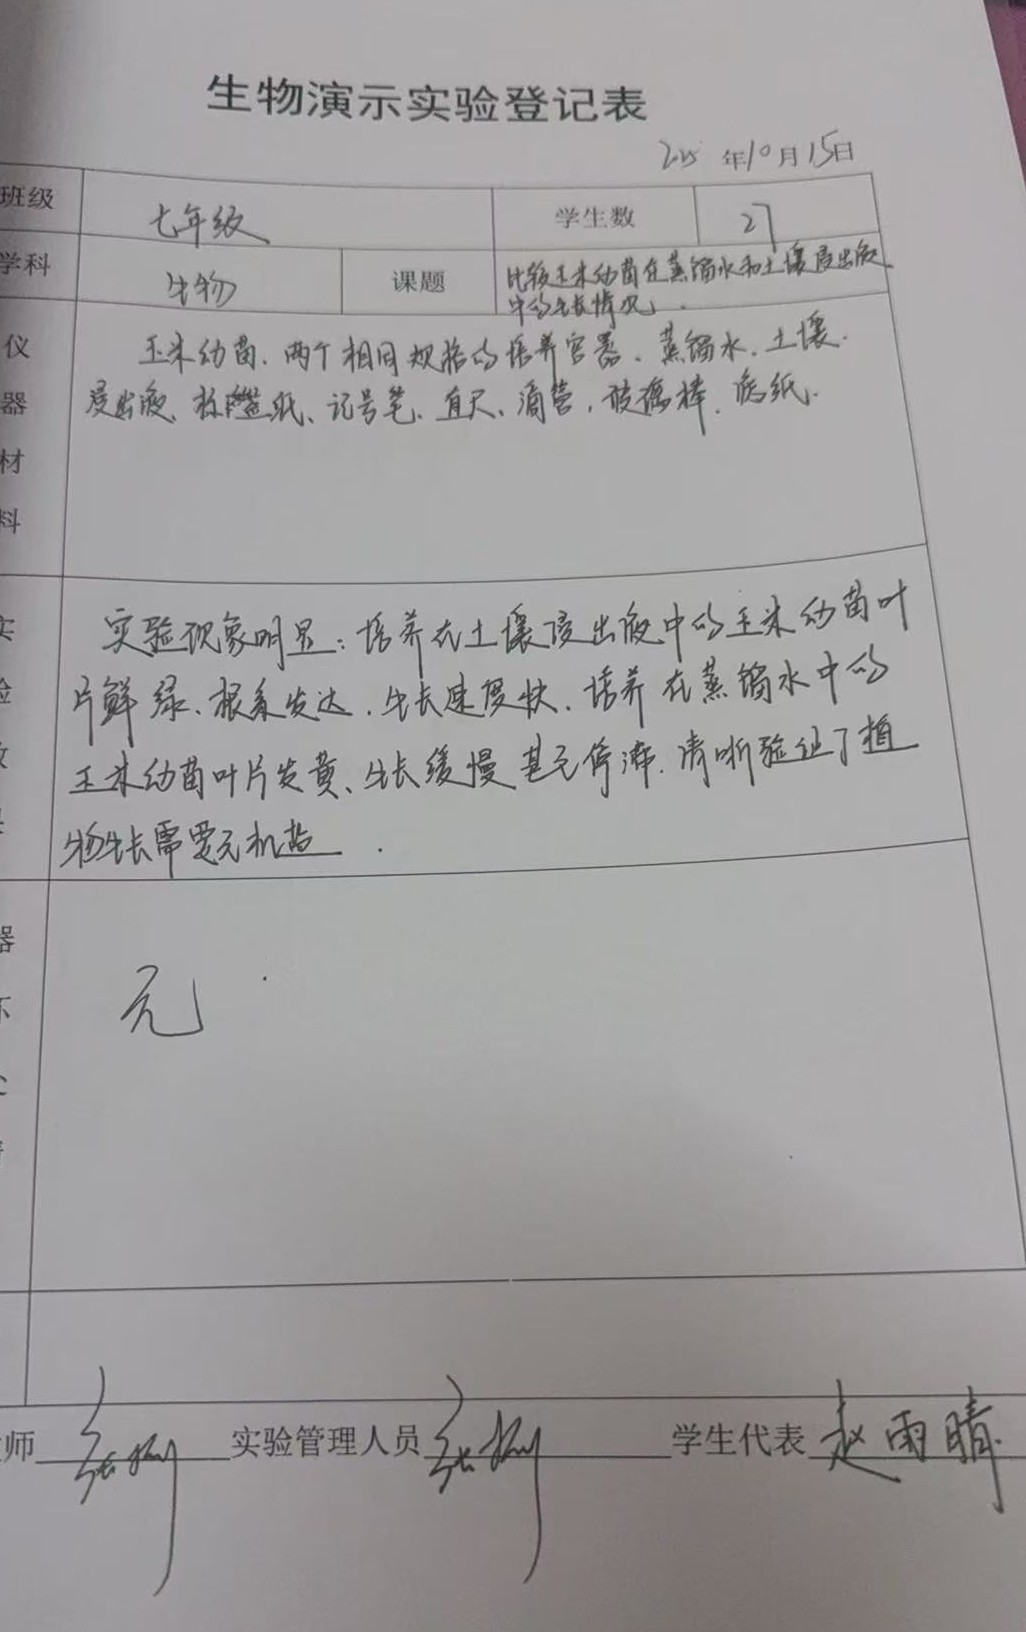 生物演示实验登记表
年10月15日
班级 七年级 学生数 27
学科 生物 课题 比较玉米幼苗在蒸馏水和土壤浸出液
中的生长情况.
仪器材料
玉米幼苗、两个相同规格的培养容器、蒸馏水、土壤
浸出液、标签纸、记号笔、直尺、滴管、玻璃棒、滤纸.
实验现象明显:培养在土壤浸出液中的玉米幼苗叶
片鲜绿、根系发达、生长速度快、培养在蒸馏水中的
玉米幼苗叶片发黄、生长缓慢甚无停滞.清晰验证了植
物生长需要无机盐.
器
无
师 实验管理人员 学生代表 赵雨晴